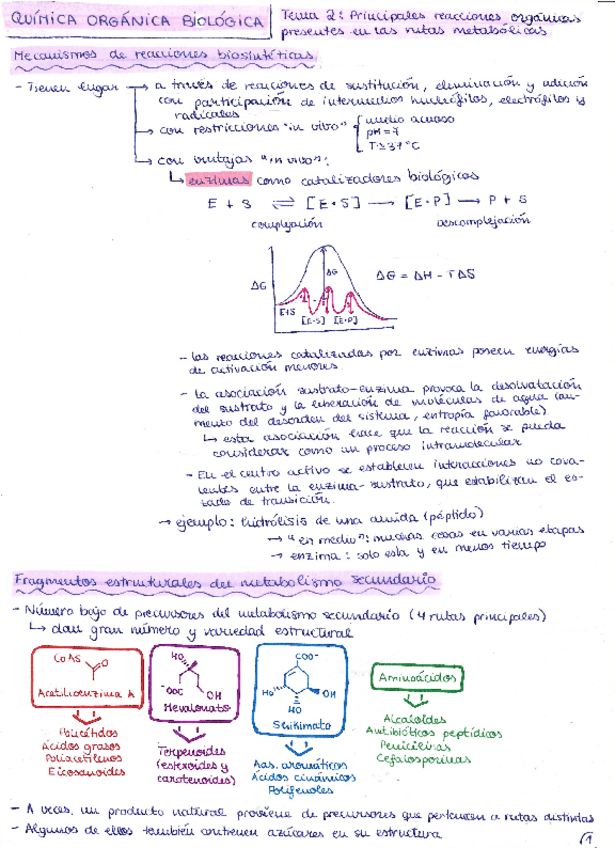 QUÍMICA ORGÁNICA BIOLÓGICA
Tema 2: Principales reacciones orgánicas
presentes en las rutas metabólicas
Mecanismos de reacciones biosintéticas
- Tienen lugar → a través de reacciones de sustitución, eliminación y adición
con participación de intermedios nucleófilos, electrófilos y
radicales
→ con restricciones "in vivo" { medio acuoso
pH = 7
T ≤ 37 °C
→ con ventajas "in vivo":
↳ enzimas como catalizadores biológicos
E + S ⇌ [E·S] → [E·P] → P + S
complejación
descomplejación
ΔG
ΔG
ΔG = ΔH - TΔS
E+S
[E·S] [E·P]
- Las reacciones catalizadas por enzimas poseen energías
de activación menores
- La asociación sustrato-enzima provoca la desolvatación
del sustrato y la liberación de moléculas de agua (au-
mento del desorden del sistema, entropía favorable)
↳ esta asociación hace que la reacción se pueda
considerar como un proceso intramolecular
- En el centro activo se establecen interacciones no cova-
lentes entre la enzima-sustrato, que estabilizan el es-
tado de transición.
→ ejemplo: hidrólisis de una amida (péptido)
→ "en medio": muchas cosas en varias etapas
→ enzima: solo esta y en menos tiempo
Fragmentos estructurales del metabolismo secundario
- Número bajo de precursores del metabolismo secundario (4 rutas principales)
↳ dan gran número y variedad estructural
CoAS
O
Acetilcoenzima A
HO
-OOC
OH
Mevalonato
COO-
HO
OH
HO
Shikimato
Aminoácidos
Policétidos
Ácidos grasos
Poliacetilenos
Eicosanoides
Terpenoides
(esteroides y
carotenoides)
Aas. aromáticos
Ácidos cinámicos
Polifenoles
Alcaloides
Antibióticos peptídicos
Penicilinas
Cefalosporinas
- A veces, un producto natural proviene de precursores que pertenecen a rutas distintas
- Algunos de ellos también contienen azúcares en su estructura
1